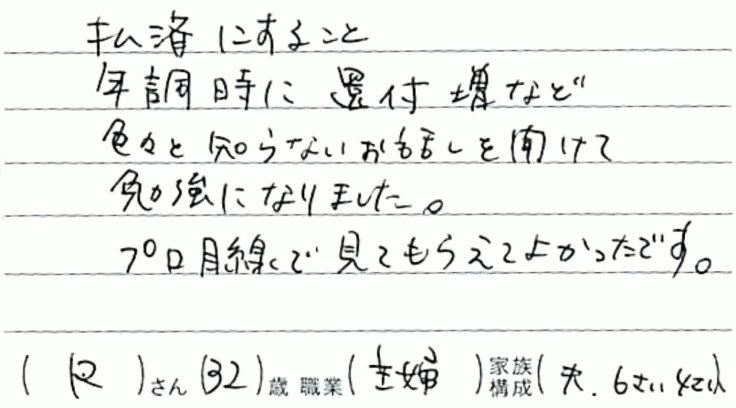 払済にすること
年調時に還付増など
色々と知らないお話しを聞けて
勉強になりました。
プロ目線で見てもらえてよかったです。
( R )さん(32)歳 職業(主婦)家族構成(夫.6さい4さい)